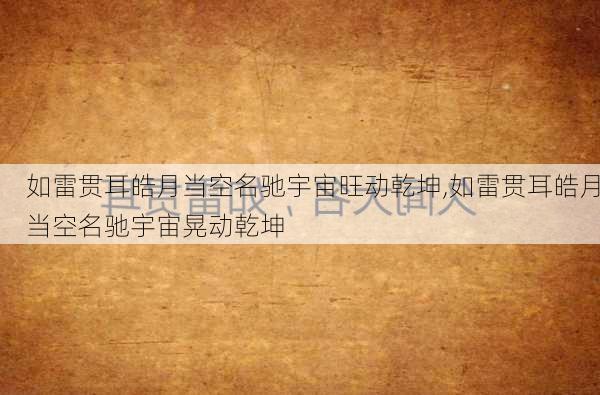 如雷贯耳皓月当空名驰宇宙旺动乾坤,如雷贯耳皓月
当空名驰宇宙晃动乾坤